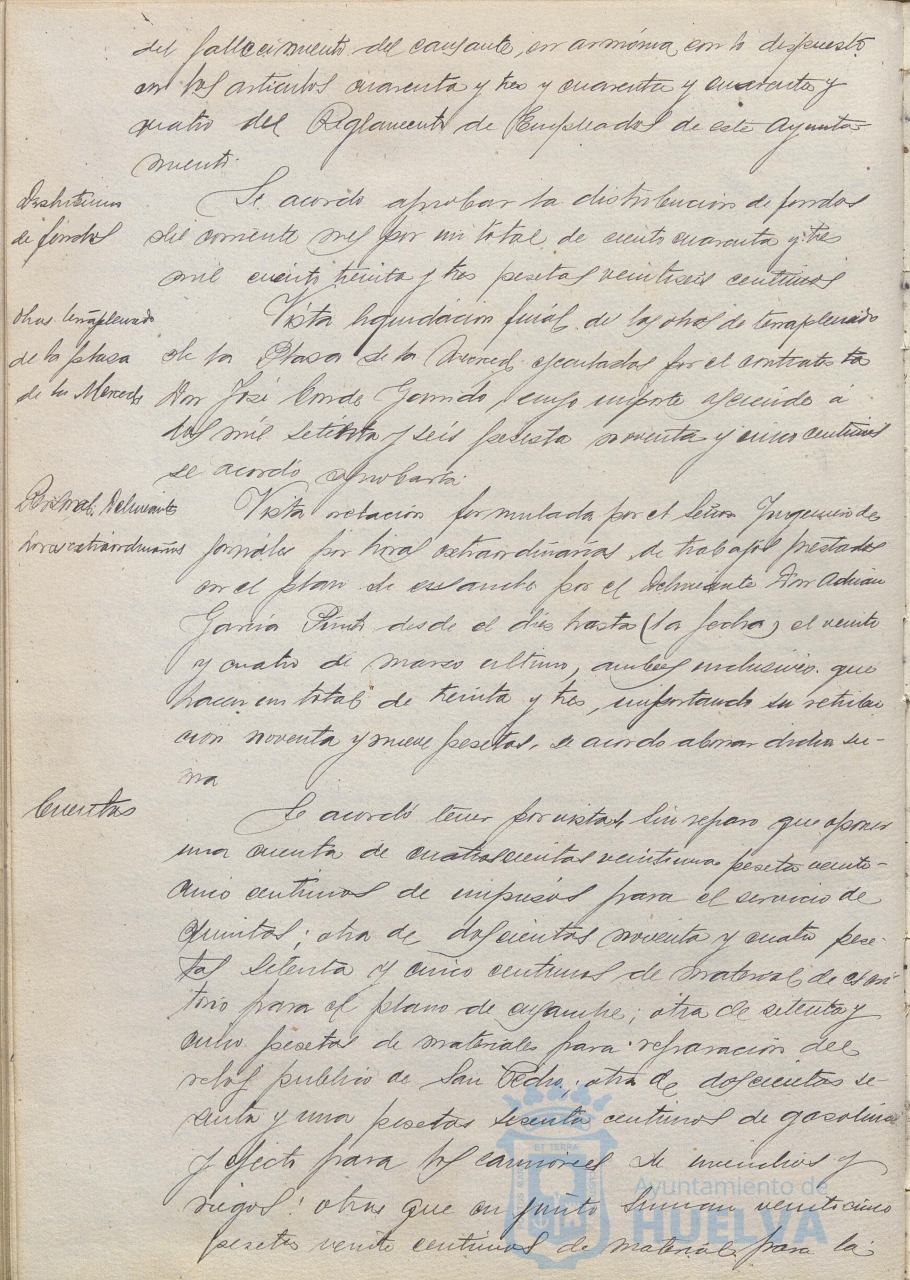 del fallecimiento del causante, en armonia con lo dispuesto
en los articulos cuarenta y tres y cuarenta y cuarenta y
cuatro del Reglamento de Empleados de este Ayunta-
miento.
Distribucion
de fondos
Se acordó aprobar la distribucion de fondos
del corriente mes por un total de ciento cuarenta y tres
mil ciento treinta y tres pesetas veintiseis centimos
Obras terraplenado
de la plaza
de la Merced
Vista liquidacion final de las obras de terraplenado
de la Plaza de la Merced ejecutadas por el contratista
Don José Conde Garrido, cuyo importe asciende á
dos mil setenta y seis pesetas noventa y cinco centimos
se acordó aprobarla.
Personal: Delineante
horas extraordinarias
Vista relación formulada por el Señor Ingeniero de
jornales por horas extraordinarias de trabajos prestados
en el plan de ensanche por el Delineante Don Adrian
Garcia desde el dies hasta (la fecha) el veinte
y cuatro de marzo ultimo, ambos inclusives que
hacen un total de treinta y tres, importando su retribu-
ción noventa y nueve pesetas, se acordó abonar dicha su-
ma
Cuentas
Se acordó tener por vistas sin reparo que oponer
una cuenta de cuatrocientas pesetas veinte-
cinco centimos de impresos para el servicio de
Quintas; otra de doscientas noventa y cuatro pese-
tas setenta y cinco centimos de material de escri-
torio para el plano de ensanche; otra de setenta y
cinco pesetas de materiales para reparación del
reloj publico de San Pedro; otra de doscientas se-
senta y una pesetas sesenta centimos de gasolina
y efectos para los camiones de incendios y
riegos; otras que en junto suman veinticinco
pesetas veinte centimos de material para la
ET TERRA
Ayuntamiento de
HUELVA